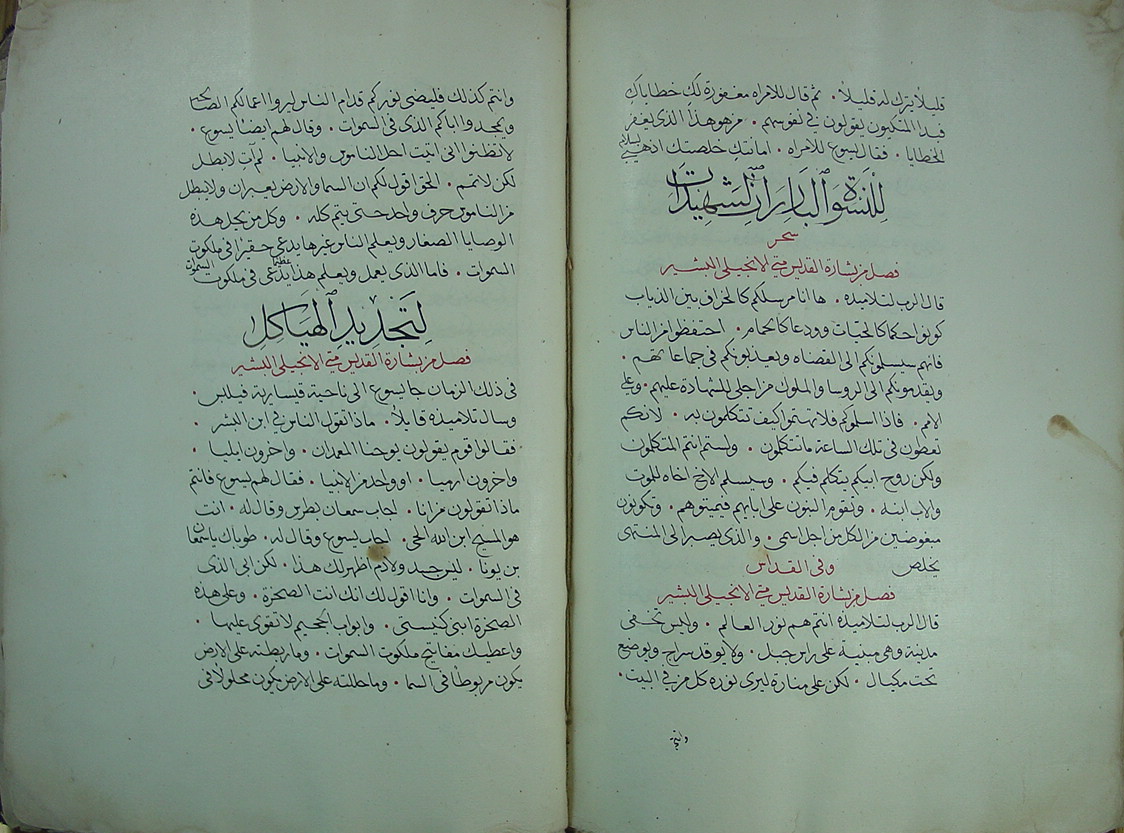 قليلاً يترك له قليلاً . ثم قال للامراه مغفورة لك خطاياكِ
فبدا المتكيون يقولون في نفوسهم . من هو هذا الذي يغفر
الخطايا . فقال يسوع للامراه . امانتكِ خلصتك اذهبي بسلام
للنسوة البارات الشهيدات
سحر
فصل من بشارة القديس متى الانجيلي البشير
قال الرب لتلاميذه . ها انا مرسلكم كالخراف بين الذياب
كونوا حكما كالحيات وودعا كالحمام . احتفظوا من الناس
فانهم سيسلمونكم الى القضاه ويعذبونكم في جماعاتهم .
ويقدمونكم الى الروسا والملوك من اجلي للشهادة عليهم . وعلى
الامم . فاذا اسلموكم فلا تهتموا كيف تتكلمون به . لانكم
تعطون في تلك الساعة ما تتكلمون . ولستم انتم المتكلمون
ولكن روح ابيكم يتكلم فيكم . وسيسلم الاخ اخاه للموت
والاب ابنه . وتقوم البنون على ابايهم فيميتوهم . وتكونون
مبغوضين من الكل من اجل اسمي . والذي يصبر الى المنتهى
يخلص وفي القداس
فصل من بشارة القديس متى الانجيلي البشير
قال الرب لتلاميذه انتم هم نور العالم . وليس تخفى
مدينة وهي مبنية على راس جبل . ولا يوقد سراج ويوضع
تحت مكيال . لكن على منارة ليرى نوره كل من في البيت .
وانتم
وانتم كذلك فليضي نوركم قدام الناس ليروا اعمالكم الصالحة
ويمجدوا اباكم الذي في السموات . وقال لهم ايضاً يسوع .
لا تظنوا اني اتيت احل الناموس والانبيا . لم آتِ لابطل
لكن لاتمم . الحق اقول لكم ان السما والارض يعبران ولا يبطل
من الناموس حرف واحد حتى يتم كله . وكل من يحل هذه
الوصايا الصغار ويعلم الناس غيرها يدعى حقيرا في ملكوت
السموات . فاما الذي يعمل ويعلم هذا يدعى عظيما في ملكوت السموات
لتجديد الهياكل
فصل من بشارة القديس متى الانجيلي البشير
في ذلك الزمان جا يسوع الى ناحية قيسارية فيلبس .
وسال تلاميذه قايلاً . ماذا تقول الناس في ابن البشر .
فقالوا قوم يقولون يوحنا المعمدان . واخرون ايليا .
واخرون ارميا . او واحد من الانبيا . فقال لهم يسوع فانتم
ماذا تقولون من انا . اجاب سمعان بطرس وقال له . انت
هو المسيح ابن الله الحي . اجاب يسوع وقال له . طوباك يا سمعان
بن يونا . ليس جسد ولا دم اظهر لك هذا . لكن ابي الذي
في السموات . وانا اقول لك انك انت الصخرة . وعلى هذه
الصخرة ابني كنيستي . وابواب الجحيم لا تقوى عليها .
واعطيك مفاتيح ملكوت السموات . وما ربطته على الارض
يكون مربوطاً في السما . وما حللته على الارض يكون محلولاً في